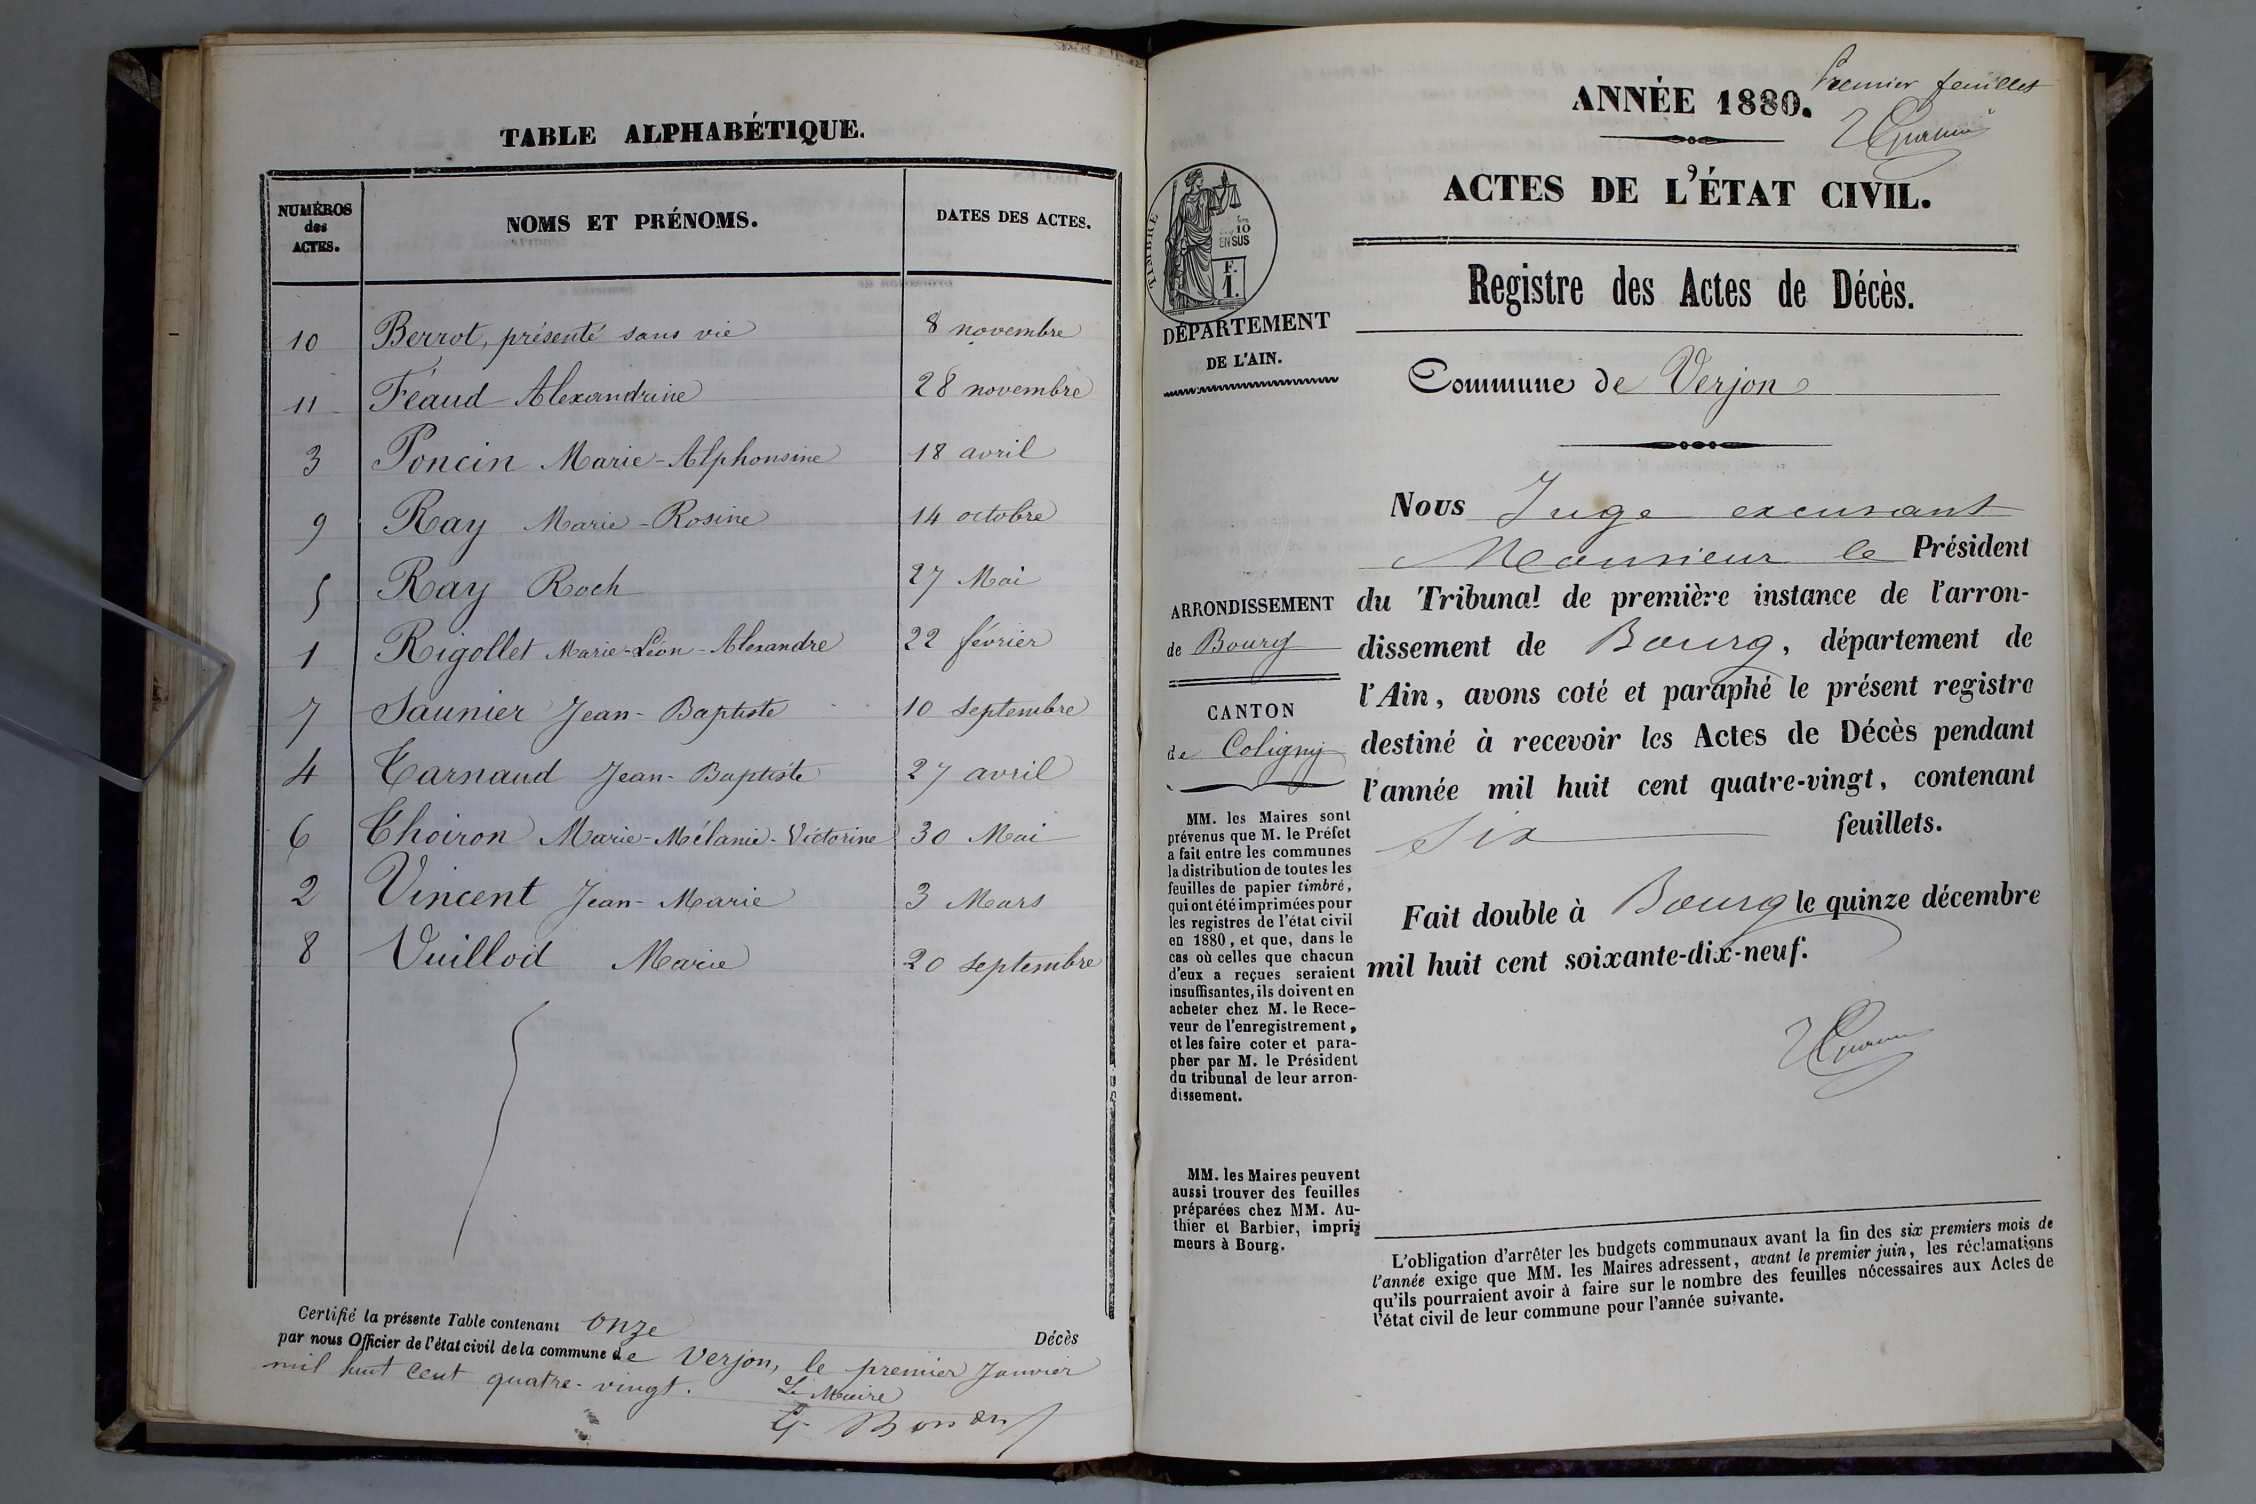 TABLE ALPHABÉTIQUE.
NUMÉROS des ACTES. NOMS ET PRÉNOMS. DATES DES ACTES.
10 Berrot, présenté sans vie 8 novembre
11 Féaud Alexandrine 28 novembre
3 Poncin Marie-Alphonsine 18 avril
9 Ray Marie-Rosine 14 octobre
5 Ray Roch 27 Mai
1 Rigollet Marie-Léon-Alexandre 22 février
7 Saunier Jean-Baptiste 10 septembre
4 Carnaud Jean-Baptiste 27 avril
6 Thoiron Marie-Mélanie-Victorine 30 Mai
2 Vincent Jean-Marie 3 Mars
8 Vuillod Marie 20 septembre
Certifié la présente Table contenant onze Décès
par nous Officier de l'état civil de la commune de Verjon, le premier Janvier
mil huit cent quatre-vingt.
Le Maire
Premier feuillet
ANNÉE 1880.
ACTES DE L'ÉTAT CIVIL.
Registre des Actes de Décès.
TIMBRE
10
EN SUS
F.
1.
DÉPARTEMENT
DE L'AIN.
Commune de Verjon
ARRONDISSEMENT
de Bourg
CANTON
de Coligny
MM. les Maires sont
prévenus que M. le Préfet
a fait entre les communes
la distribution de toutes les
feuilles de papier timbré,
qui ont été imprimées pour
les registres de l'état civil
en 1880, et que, dans le
cas où celles que chacun
d'eux a reçues seraient
insuffisantes, ils doivent en
acheter chez M. le Rece-
veur de l'enregistrement,
et les faire coter et para-
pher par M. le Président
du tribunal de leur arron-
dissement.
MM. les Maires peuvent
aussi trouver des feuilles
préparées chez MM. Au-
thier et Barbier, impri-
meurs à Bourg.
Nous Juge excusant
Monsieur le Président
du Tribunal de première instance de l'arron-
dissement de Bourg, département de
l'Ain, avons coté et paraphé le présent registre
destiné à recevoir les Actes de Décès pendant
l'année mil huit cent quatre-vingt, contenant
six feuillets.
Fait double à Bourg le quinze décembre
mil huit cent soixante-dix-neuf.
L'obligation d'arrêter les budgets communaux avant la fin des six premiers mois de
l'année exige que MM. les Maires adressent, avant le premier juin, les réclamations
qu'ils pourraient avoir à faire sur le nombre des feuilles nécessaires aux Actes de
l'état civil de leur commune pour l'année suivante.